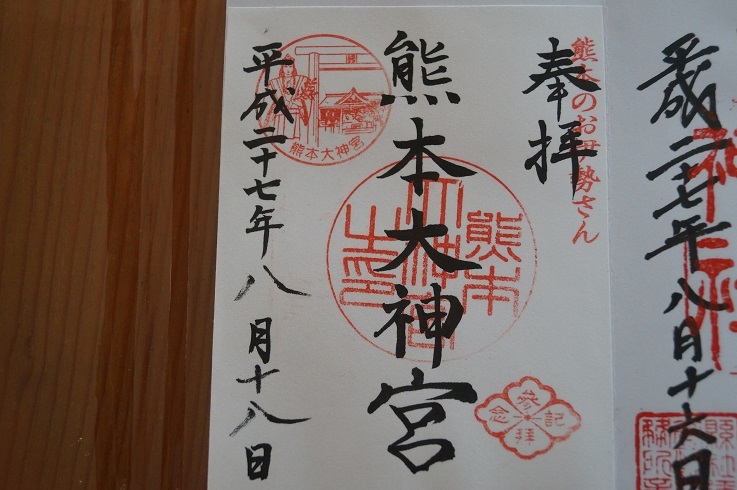 平成二十七年八月十六日
奉拝
熊本のお伊勢さん
熊本大神宮
熊本大神宮之印
参拝記念
熊本大神宮
平成二十七年八月十八日